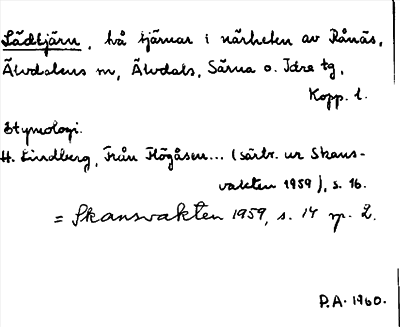 Lädtjärn, två tjärnar i närheten av Rånäs,
Älvdalens m, Älvdals, Särna o. Idre tg,
Kopp. l.
Etymologi.
H. Lindberg, Från Högåsen... (särtr. ur Skans-
vakten 1959), s. 16.
= Skansvakten 1959, s. 14 sp. 2.
P.A. 1960.